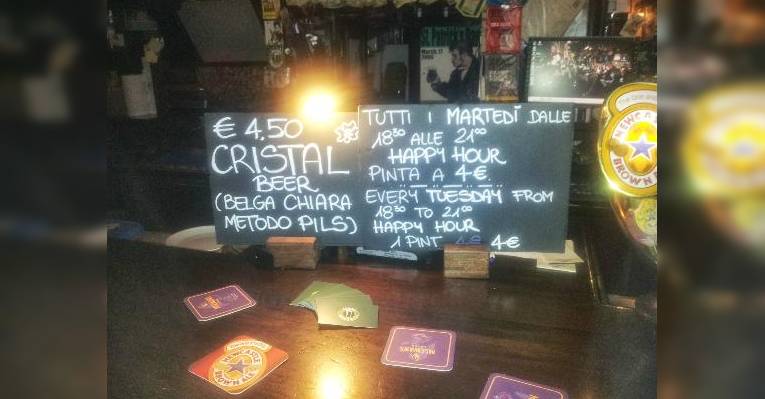 € 4,50
CRISTAL
BEER
(BELGA CHIARA
METODO PILS)
TUTTI I MARTEDÌ DALLE
18³⁰ ALLE 21⁰⁰
HAPPY HOUR
PINTA A 4€.
EVERY TUESDAY FROM
18³⁰ TO 21⁰⁰
HAPPY HOUR
1 PINT 4€ 4€
NEWCASTLE
BROWN ALE
NEWCASTLE
BROWN ALE
McEWAN'S